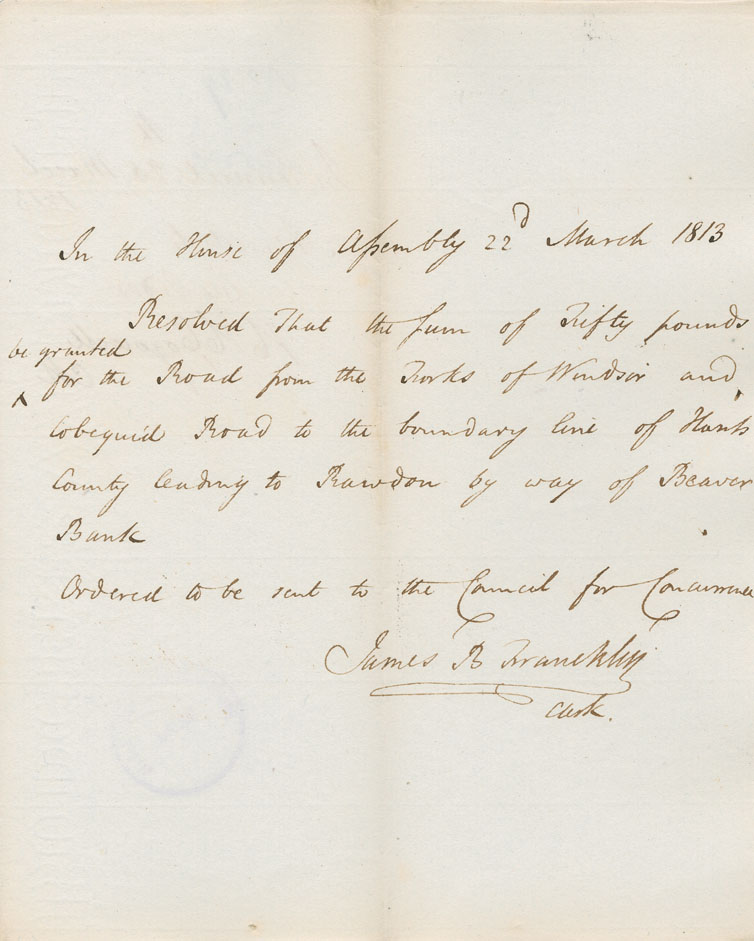 In the House of Assembly 22d March 1813
Resolved That the sum of Fifty pounds
be granted
for the Road from the Forks of Windsor and
Cobequid Road to the boundary line of Hants
County leading to Rawdon by way of Beaver
Bank
Ordered to be sent to the Council for Concurrence
James B Francklin
Clerk.